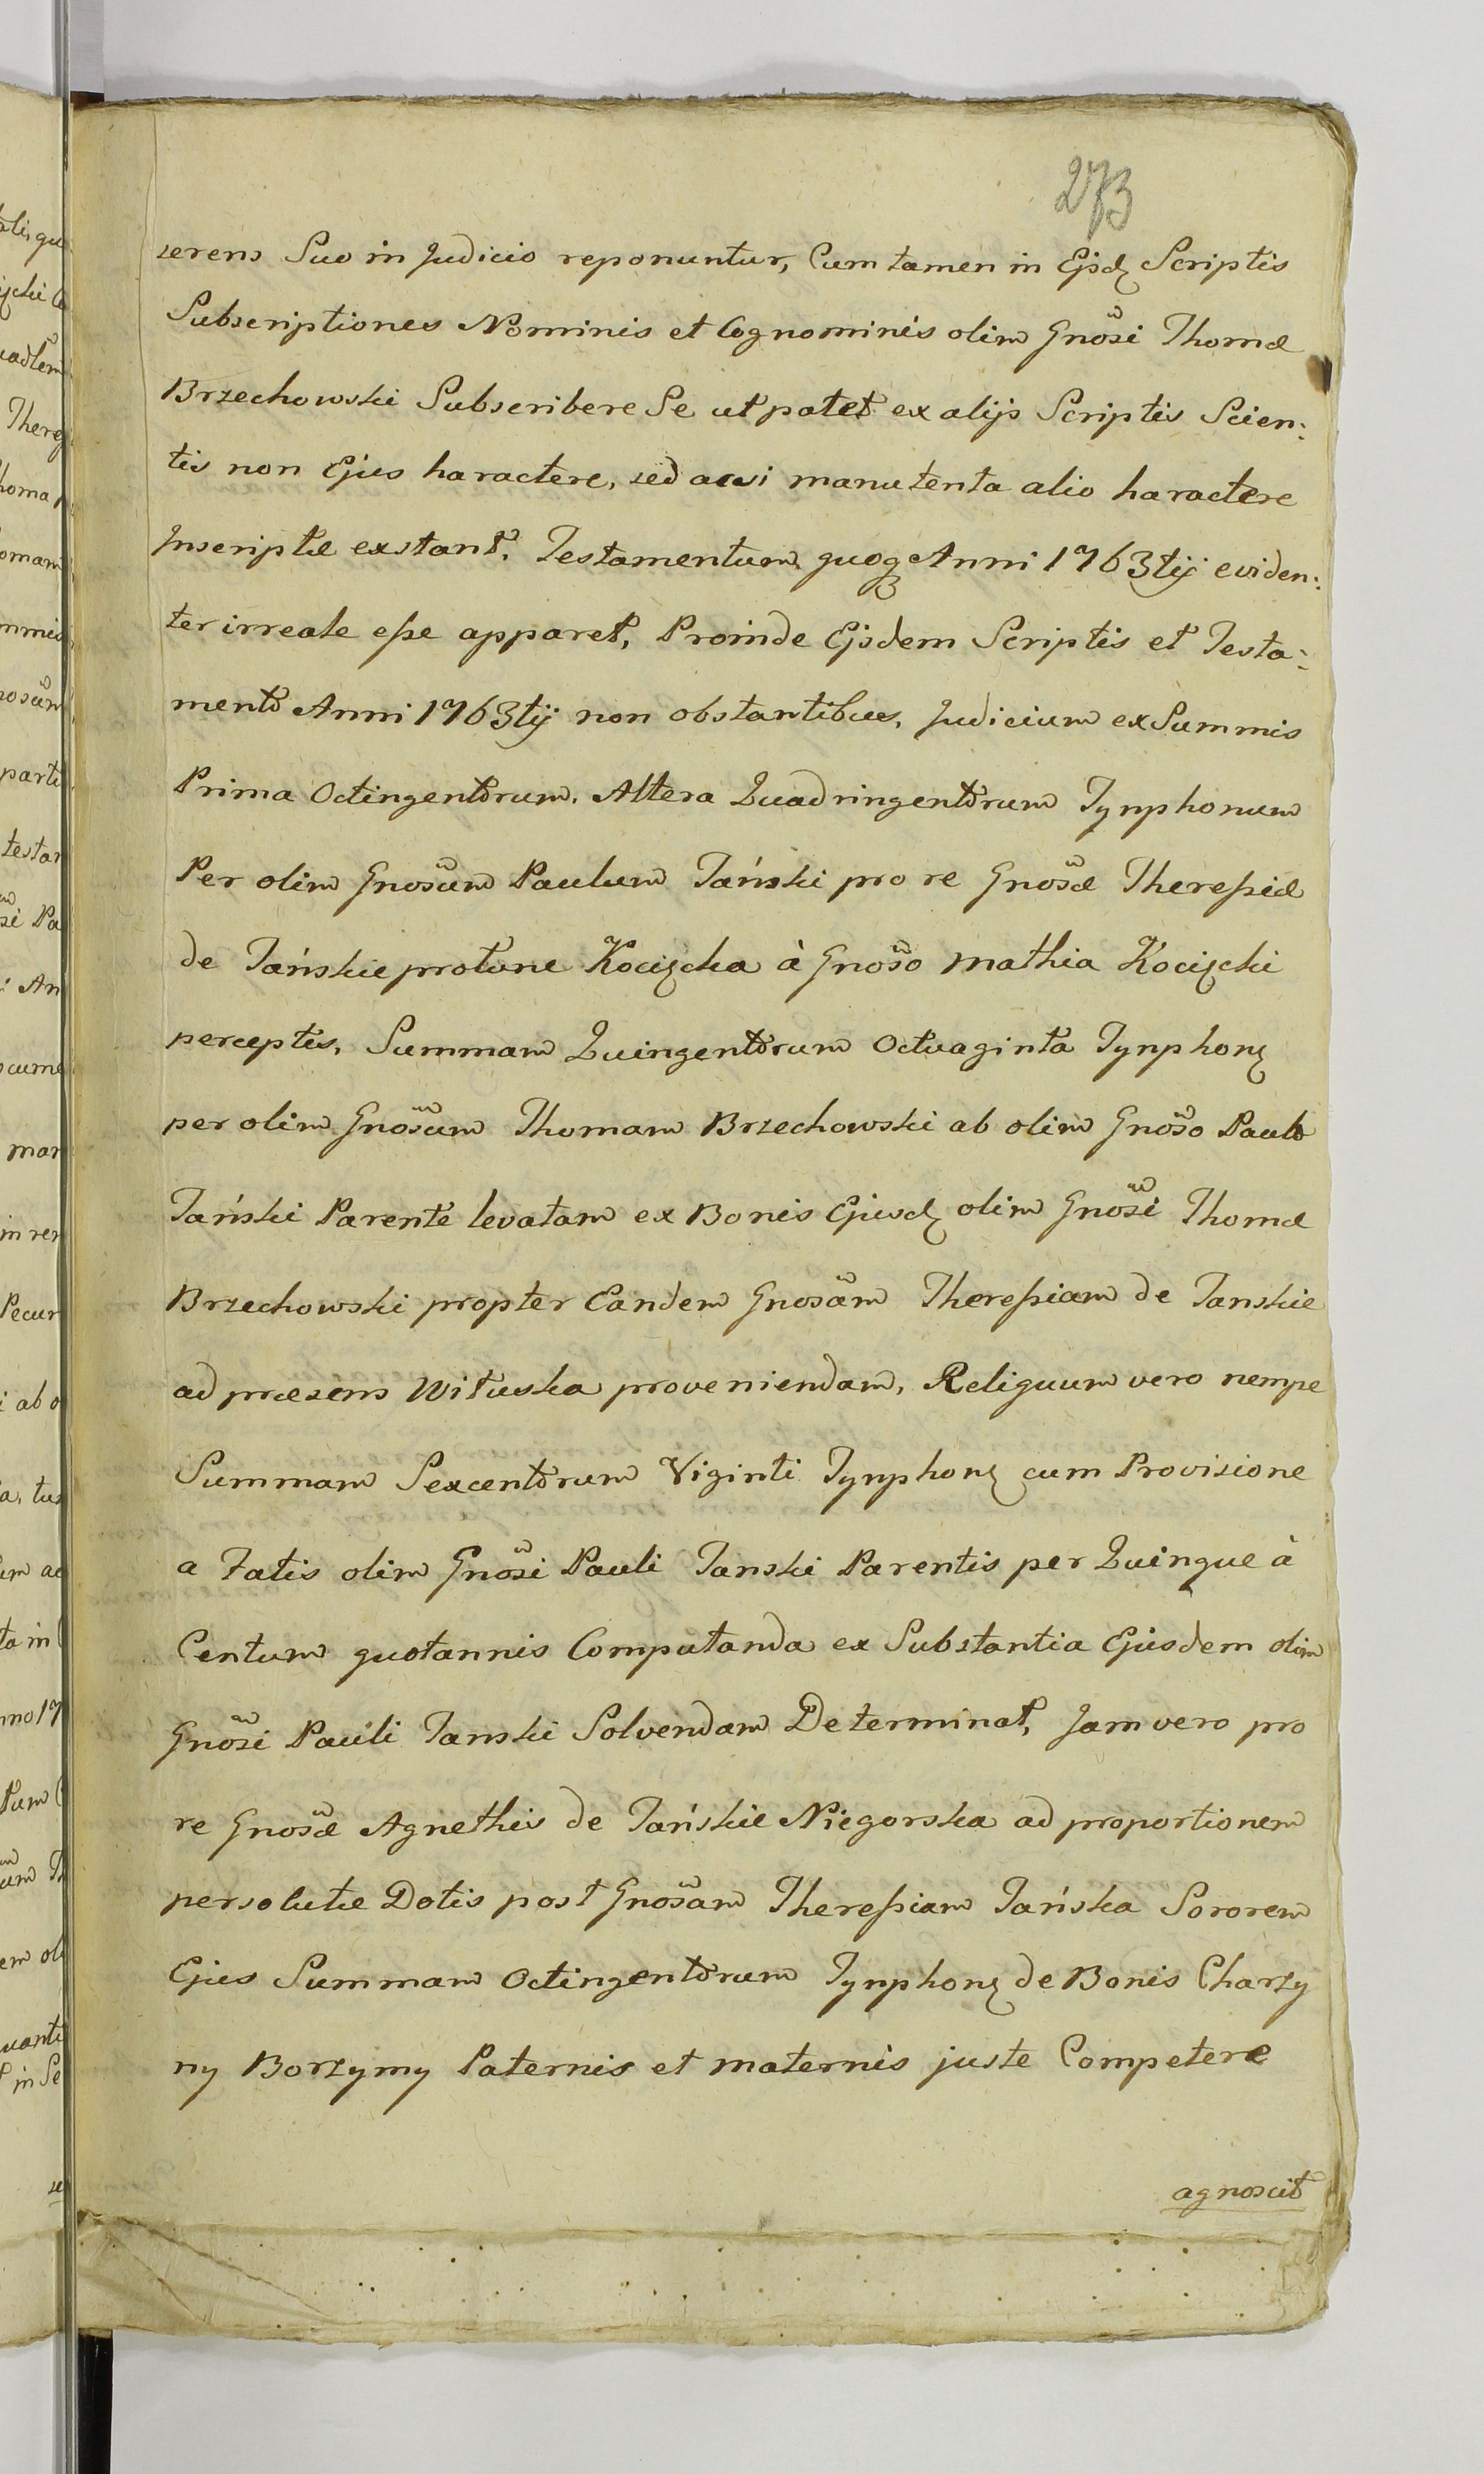 273
serens Suo in Judicio reponuntur, Cum tamen in Ejsdꝫ Scriptis
Subscriptiones Nominis et Cognominis olim Gnosi Thomæ
Brzechowski Subscribere Se ut patet ex alijs Scriptis Scien:
tis non Ejus haractere, sed acsi manutenta alio haractere
Inscriptæ exstant, Testamentum quoqꝫ Anni 1763tij eviden:
ter irreale eße apparet, Proinde Ejsdem Scriptis et Testa:
mento Anni 1763tij non obstantibus, Judicium ex Summis
Prima Octingentorum, Altera Quadringentorum Tynphonum
Per olim Gnosum Paulum Tański pro re Gnosæ Thereßiæ
de Tańskie protunc Kociҫcka à Gnoso Mathia Kociҫcki
perceptis, Summam Quingentorum Octuaginta Tynphonꝫ
per olim Gnosum Thomam Brzechowski ab olim Gnoso Paulo
Tański Parente levatam ex Bonis Ejusdꝫ olim Gnosi Thomæ
Brzechowski propter Eandem Gnosam Thereßiam de Tanskie
ad præsens Wituska proveniendam, Reliquum vero nempe
Summam Sexcentorum Viginti Tynphonꝫ cum Provisione
a Fatis olim Gnosi Pauli Tanski Parentis per Quinque à
Centum quotannis Computanda ex Substantia Ejusdem olim
Gnosi Pauli Tanski Solvendam Determinat, Jam vero pro
re Gnosæ Agnethis de Tańskie Niegorska ad proportionem
persolutæ Dotis post Gnosam Thereßiam Tańska Sororem
Ejus Summam Octingentorum Tynphonꝫ de Bonis Charzy
ny Borzymy Paternis et maternis juste Competere
agnoscit